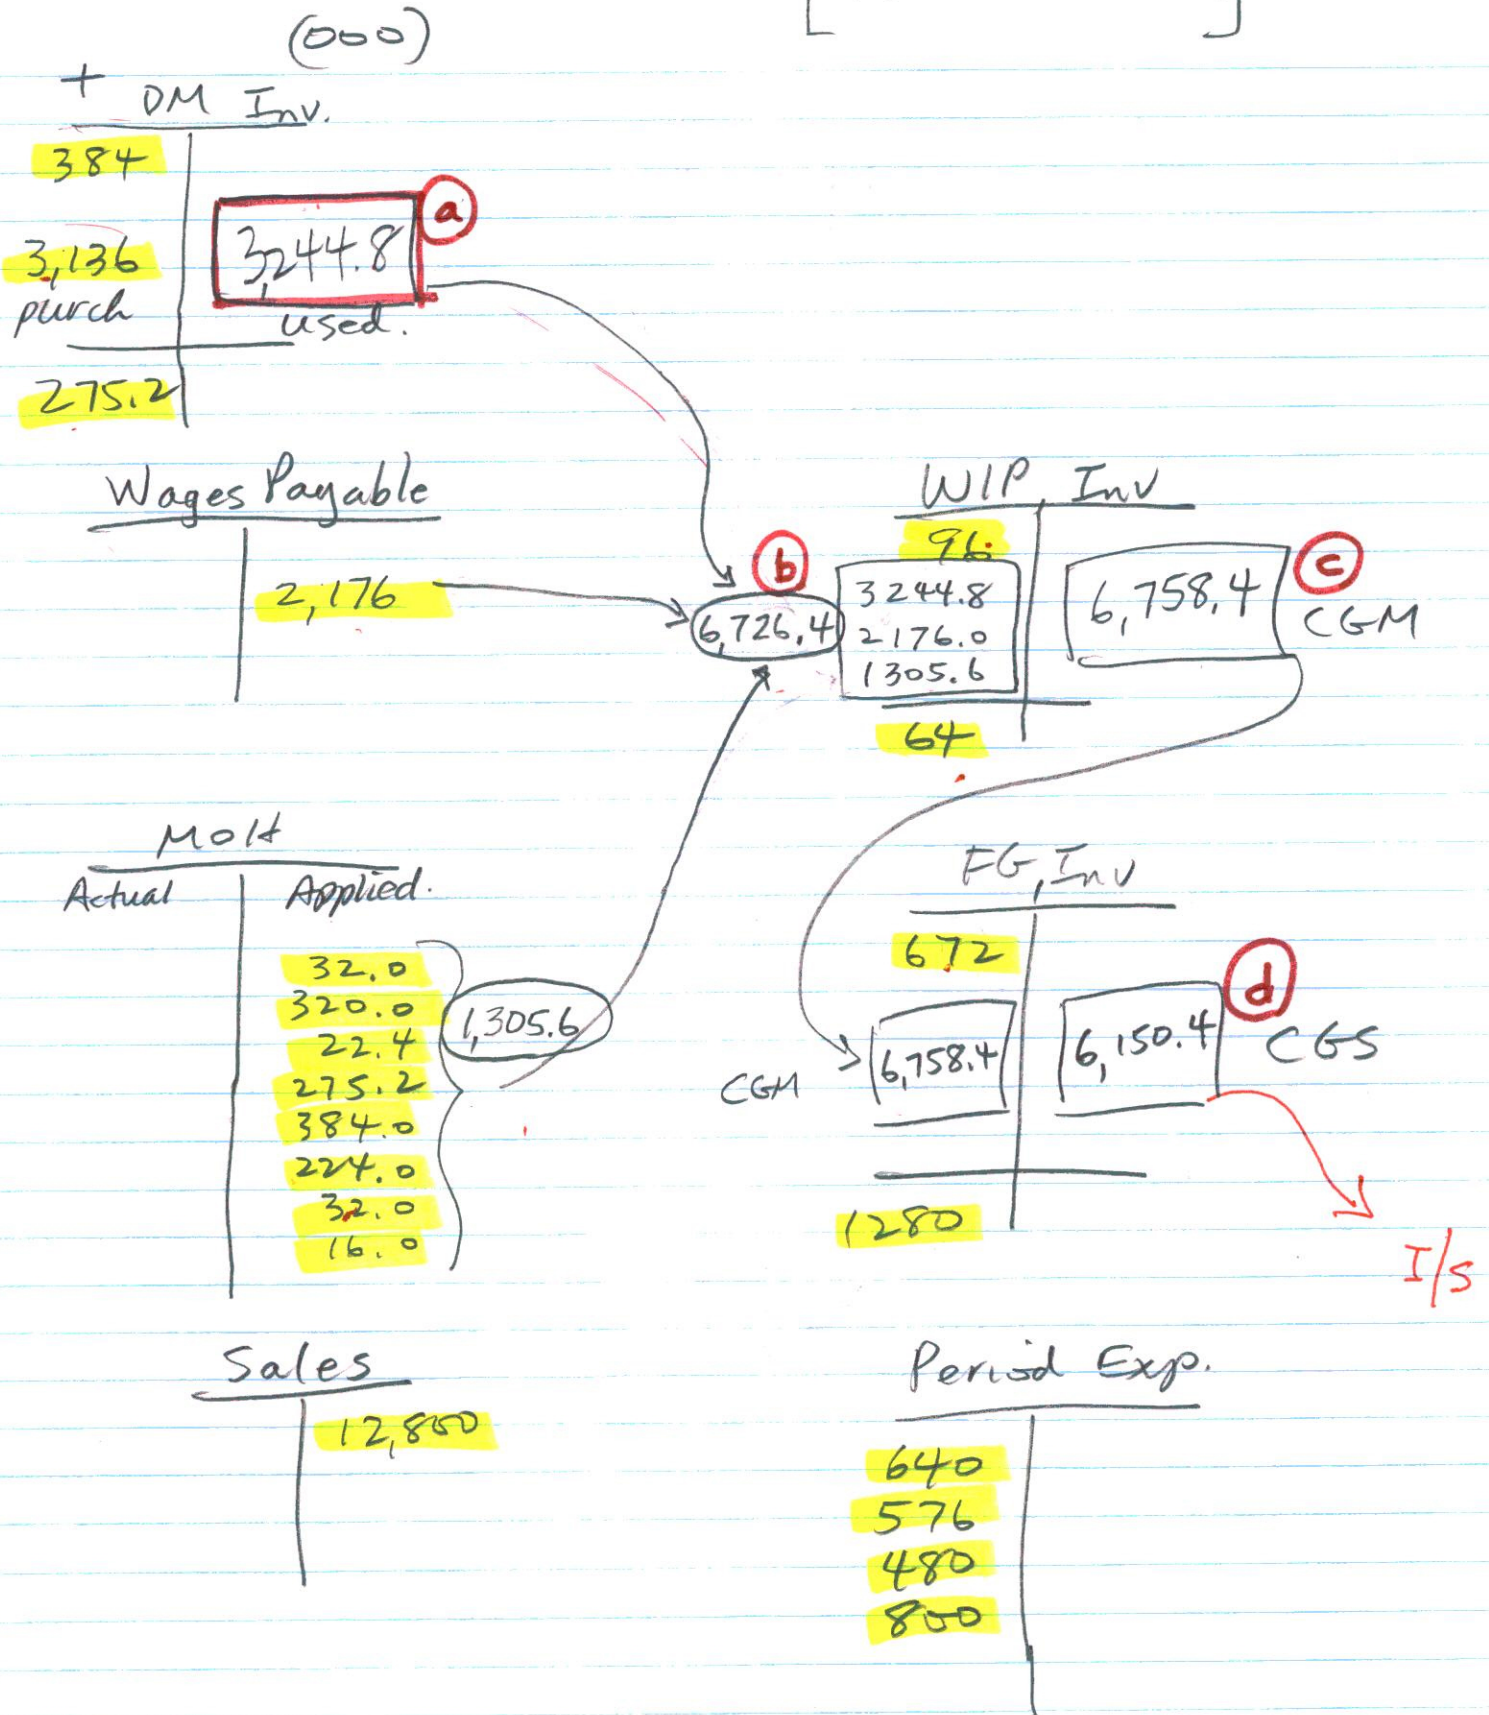 (000)
[ ]
+
DM Inv.
384
3,244.8
a
3,136
purch
used.
275.2
Wages Payable
2,176
WIP Inv
96
b
6,726.4
3244.8
2176.0
1305.6
6,758.4
c
CGM
64
MOH
Actual
Applied.
32.0
320.0
22.4
275.2
384.0
224.0
32.0
16.0
1,305.6
FG, Inv
672
CGM
6,758.4
6,150.4
d
CGS
1280
I/S
Sales
12,800
Period Exp.
640
576
480
800